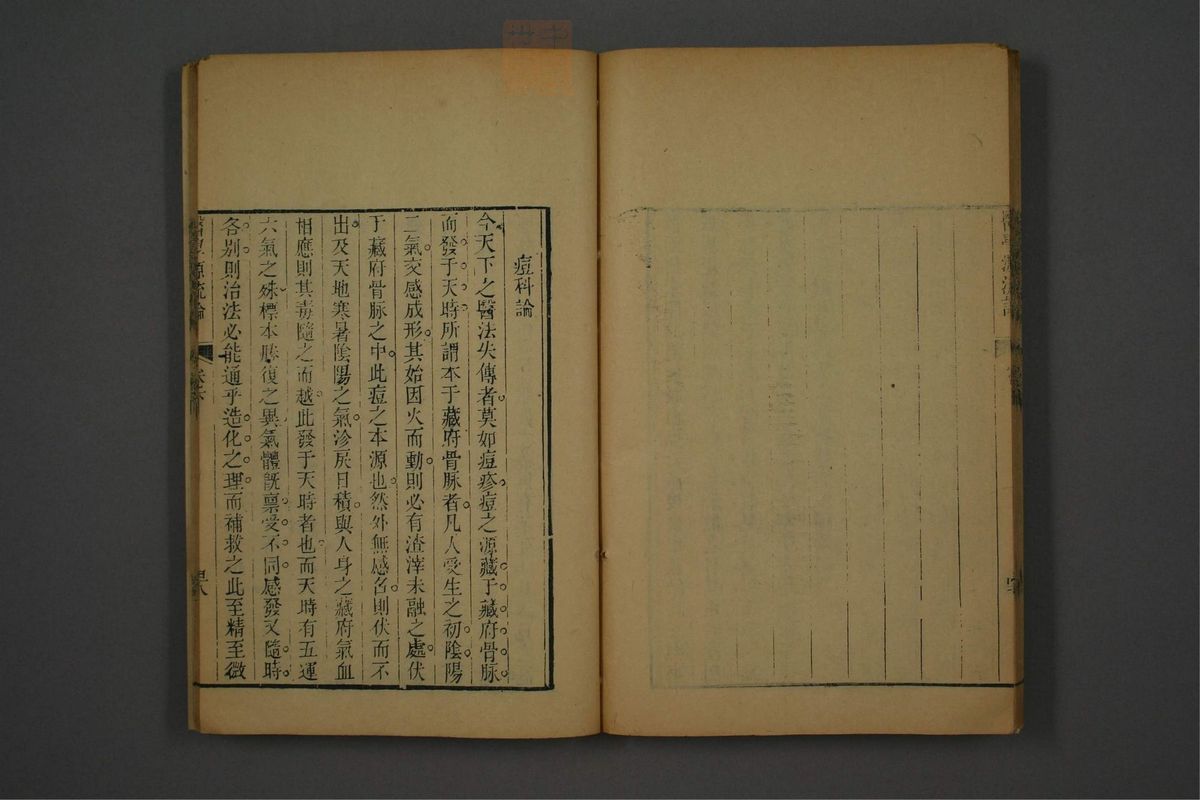 痘科論
今天下之醫法失傳者莫如痘疹痘之源藏于藏府骨脉
而發于天時所謂本于藏府骨脉者凡人受生之初陰陽
二氣交感成形其始因火而動則必有渣滓未融之處伏
于藏府骨脉之中此痘之本源也然外無感召則伏而不
出及天地寒暑陰陽之氣沴戾日積與人身之藏府氣血
相應則其毒隨之而越此發于天時者也而天時有五運
六氣之殊標本勝復之異氣體旣禀受不同感發又隨時
各别則治法必能通乎造化之理而補救之此至精至微
醫學源流論
卷下